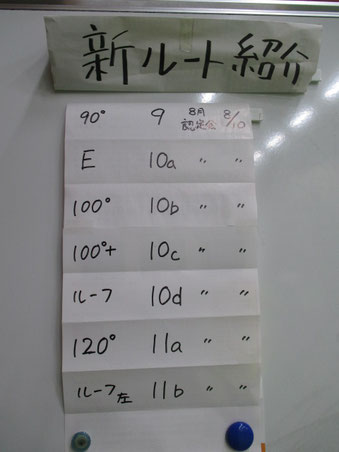 新ルート紹介
90° 9 8月認定会 8/10
E 10a 〃 〃
100° 10b 〃 〃
100°+ 10c 〃 〃
ルーフ 10d 〃 〃
120° 11a 〃 〃
ルーフ左 11b 〃 〃